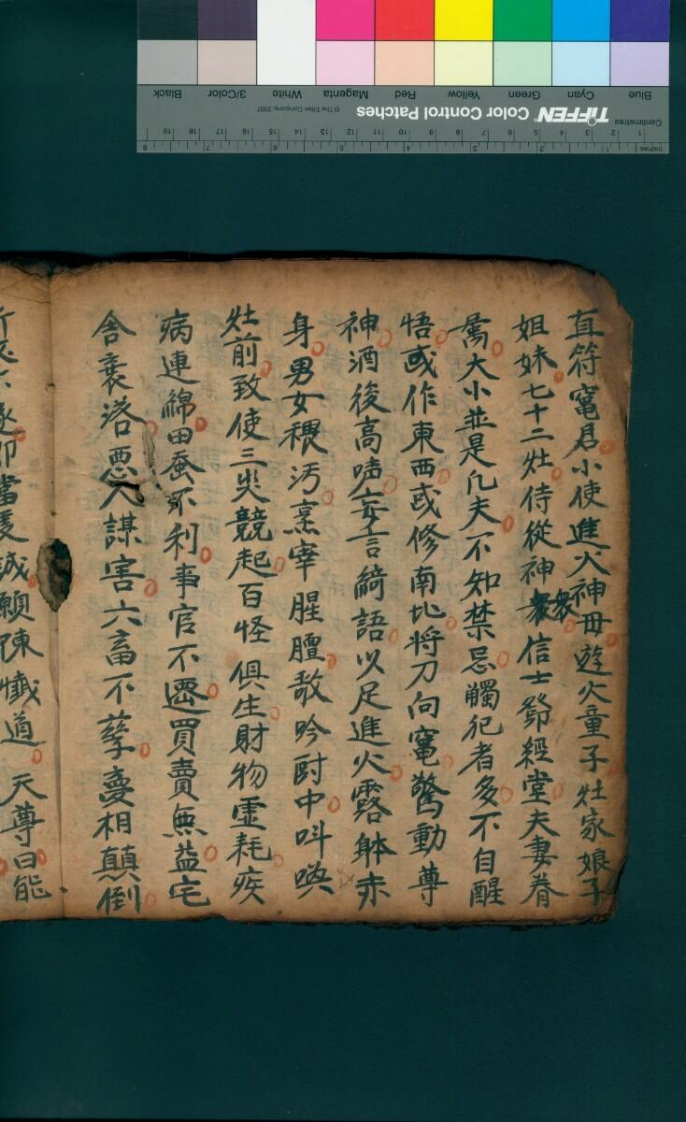 直符竈君小使進火神母遊火童子灶家娘子
姐妹七十二灶侍從神衆信士鄧經堂夫妻眷
属大小並是凡夫不知禁忌觸犯者多不自醒
悟或作東西或修南北将刀向竈驚動尊
神酒後高声妄言綺語以足進火露躰赤
身男女穢汚烹宰腥膻敲吟厨中呌喚
灶前致使三灾競起百怪俱生財物虛耗疾
病連綿田蚕不利事官不遷買賣無益宅
舍衰落悪人謀害六畜不孳憂相顛倒
當虔誠願陳懺道天尊曰能
TIFFEN Color Control Patches
© The Tiffen Company, 2007
Centimetres
Inches
Blue Cyan Green Yellow Red Magenta White 3/Color Black
1 2 3 4 5 6 7 8 9 10 11 12 13 14 15 16 17 18 19
1 2 3 4 5 6 7 8